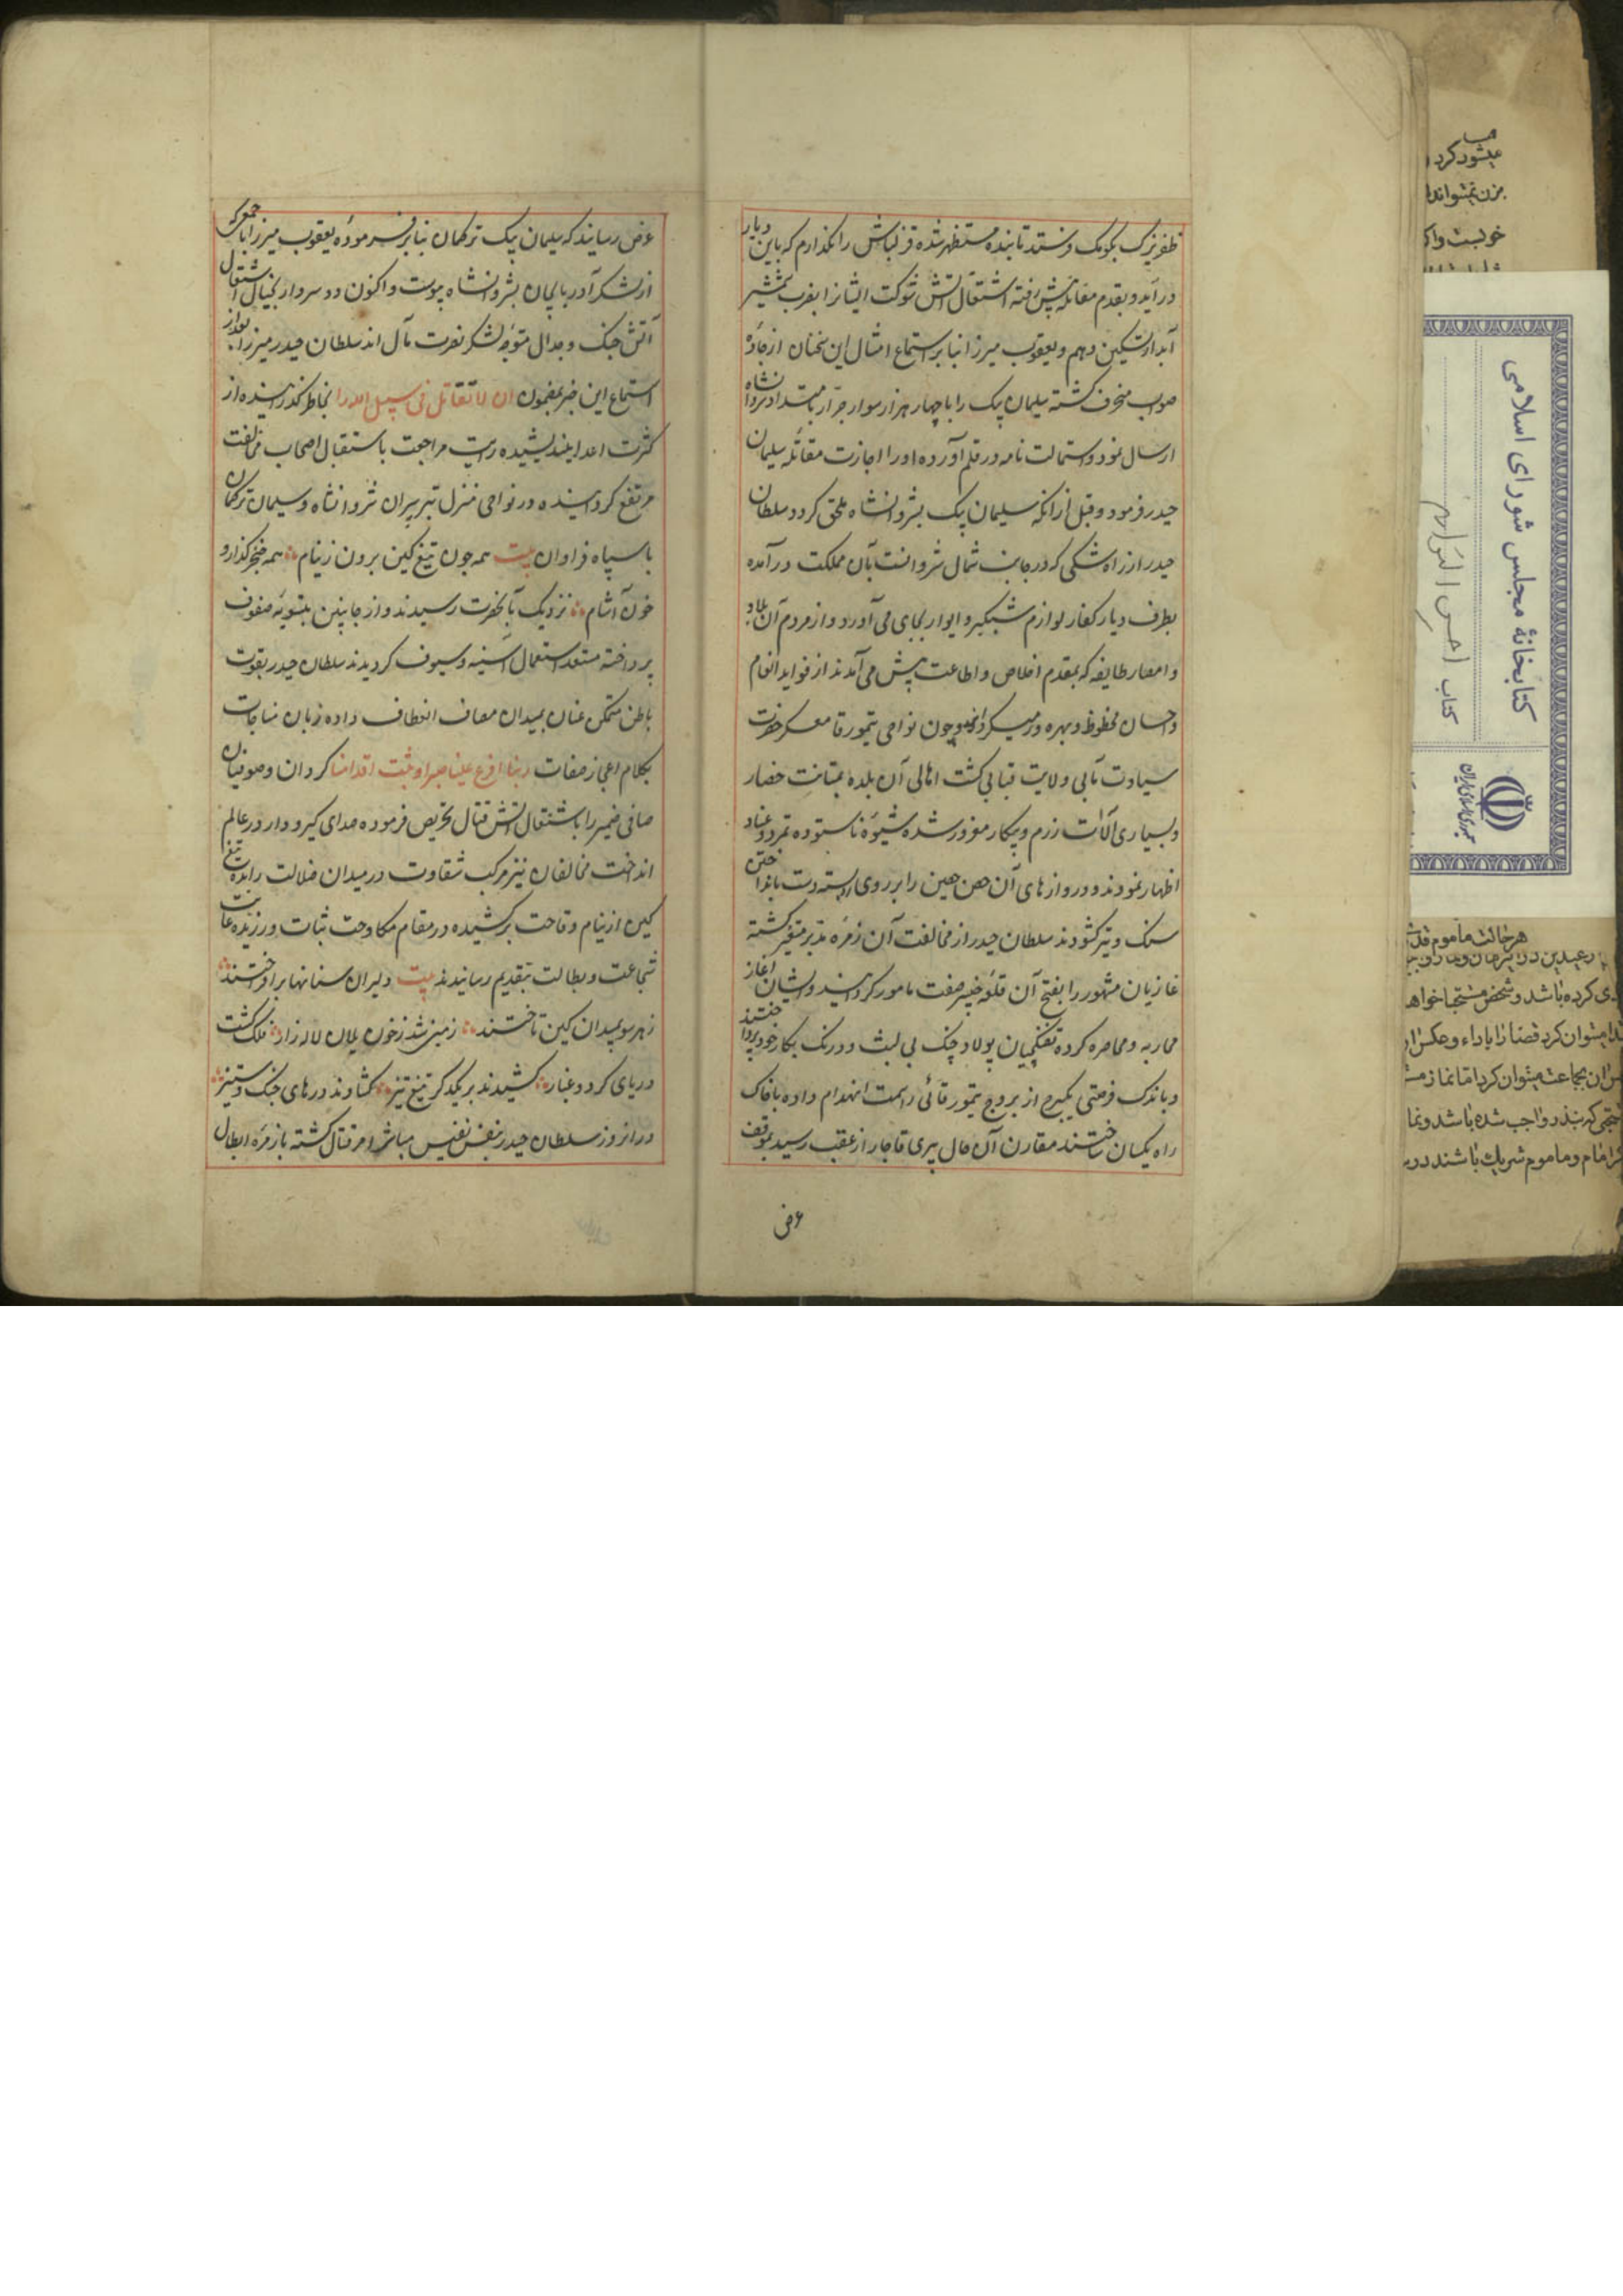 ظفر ترک بکومک فرستد تا بنده مستظهر شده قزلباش را نکذارم که باین دیار
درآید و بقدم مقاتله پیش رفته اشتعال آتش شوکت ایشانرا بضرب شمشیر
آبدار تسکین دهم و یعقوب میرزا بنا بر استماع امثال این سخنان از جاده
صواب منحرف کشته سلیمان بیک را با چهار هزار سوار جرار بامداد شروانشاه
ارسال نمود و استمالت نامه در قلم آورده او را اجازت مقاتله سلطان
حیدر فرمود و قبل از انکه سلیمان بیک بشروانشاه ملحق کردد سلطان
حیدر از راه شکی که در جانب شمال شروانست بآن مملکت درآمده
بطرف دیار کفار لوازم شبکیر و ایوار بجای می آورد و از مردم آن بلاد
و امصار طایفه که بقدم اخلاص و اطاعت پیش می آمدند از فواید انعام
و احسان محظوظ و بهره ور میکردانید و چون نواحی تیمور قا معسکر حضرت
سیادت مآبی ولایت قبابی کشت اهالی آن بلده بمتانت حصار
و بسیاری آلات رزم و پیکار مغرور شده شیوه ناستوده تمرد و عناد
اظهار نمودند و دروازهای آن حصن حصین را بر روی بسته دست بانداختن
سنک و تیر کشودند سلطان حیدر از مخالفت آن زمره مدبر متغیر کشته
غازیان مشهور را بفتح آن قلعه خیبر صفت مامور کردانید و ایشان آغاز
محاربه و محاصره کرده تفنکچیان پولاد چنک بی لبث و درنک بکار خود پرداختند
و باندک فرصتی یکبرج از بروج تیمور قائی را سمت انهدام داده با خاک
راه یکسان ساختند مقارن آن حال پیری قاجار از عقب رسید بموقف
عرض
عرض رسانید که سلیمان بیک ترکمان بنابر فرموده یعقوب میرزا با جمعی
از لشکر آذربایجان بشروانشاه پیوست و اکنون دو سردار بخیال اشتعال
آتش جنک و جدال متوجه لشکر نصرت مآل اند سلطان حیدر میرزا بعد از
استماع این خبر بمضمون ان لا تقاتل فی سبیل الله را بخاطر کذرانیده از
کثرت اعدا نیندیشیده رایت مراجعت باستقبال اصحاب مخالفت
مرتفع کردانیده در نواحی منزل تبرسران شروانشاه و سلیمان ترکمان
با سپاه فراوان بیت همه چون تیغ کین برون ز نیام همه خنجر کذار و
خون آشام نزدیک بآنحضرت رسیدند و از جانبین بتسویه صفوف
پرداخته مستعد استعمال اسنه و سیوف کردیدند سلطان حیدر بقوت
باطن متمکن عنان بمیدان مصاف انعطاف داده زبان مناجات
بکلام اعجاز صفات ربنا افرغ علینا صبرا و ثبت اقدامنا کردان و صوفیان
صافی ضمیر را باشتعال آتش قتال تحریص فرموده صدای کیرودار در عالم
انداخت مخالفان نیز مرکب شقاوت در میدان ضلالت رانده تیغ
کین از نیام وقاحت برکشیده در مقام مکاوحت ثبات ورزیده غایت
شجاعت و بطالت بتقدیم رسانیدند بیت دلیران سنانها برافراختند
زهر سو بمیدان کین تاختند زمین شد ز خون یلان لاله زار فلک کشت
دریای کرد و غبار کشیدند بر یکدکر تیغ تیز کشادند درهای جنک و ستیز
در انروز سلطان حیدر بنفس نفیس مباشر امر قتال کشته با زمره ابطال
کتابخانهٔ مجلس شورای اسلامی
کتاب احسن التواریخ
جمهوری اسلامی ایران
میشود کرد
هر حالت ماموم